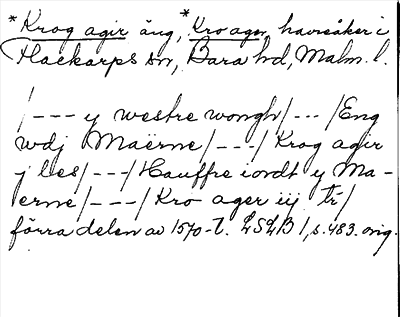 *Krog agir äng, *Kro ager, havreåker i
Flackarps sn, Bara hd, Malm. l.
/--- y westre wongh/---/Eng
wdj Maërne/---/Krog agir
y les/---/Hauffre iordt y Ma-
erne/---/Kro ager iij tr/
förra delen av 1570-t. LSLB 1, s. 483. orig.